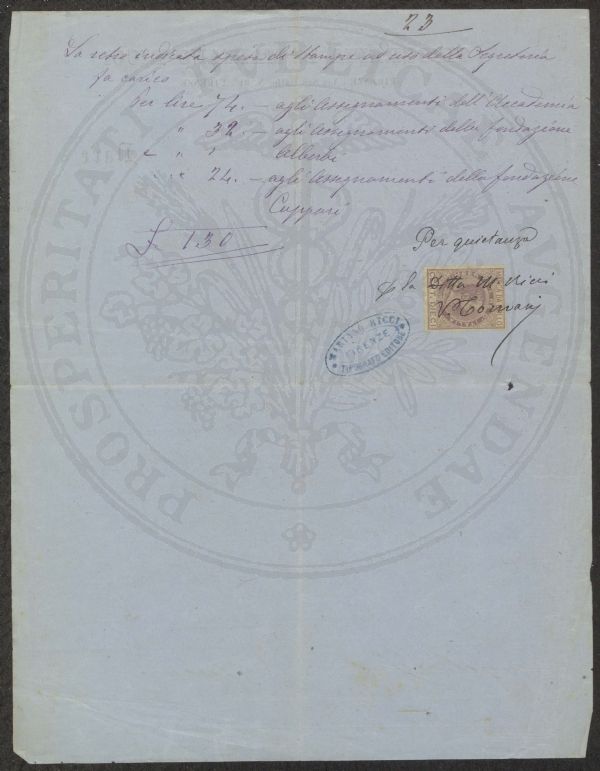 23
La retro indicata spesa di stampe ad uso della Segreteria
fa carico
Per lire 74. — agli Assegnamenti dell'Accademia
" 32. — agli Assegnamenti della fondazione
" Alberti
" 24. — agli Assegnamenti della fondazione
Cuppari
£ 130
Per quietanza
la Ditta M. Ricci
MARIANO RICCI
FIRENZE
TIPOGRAFO EDITORE
PROSPERITATI PUBLICAE AUGENDAE